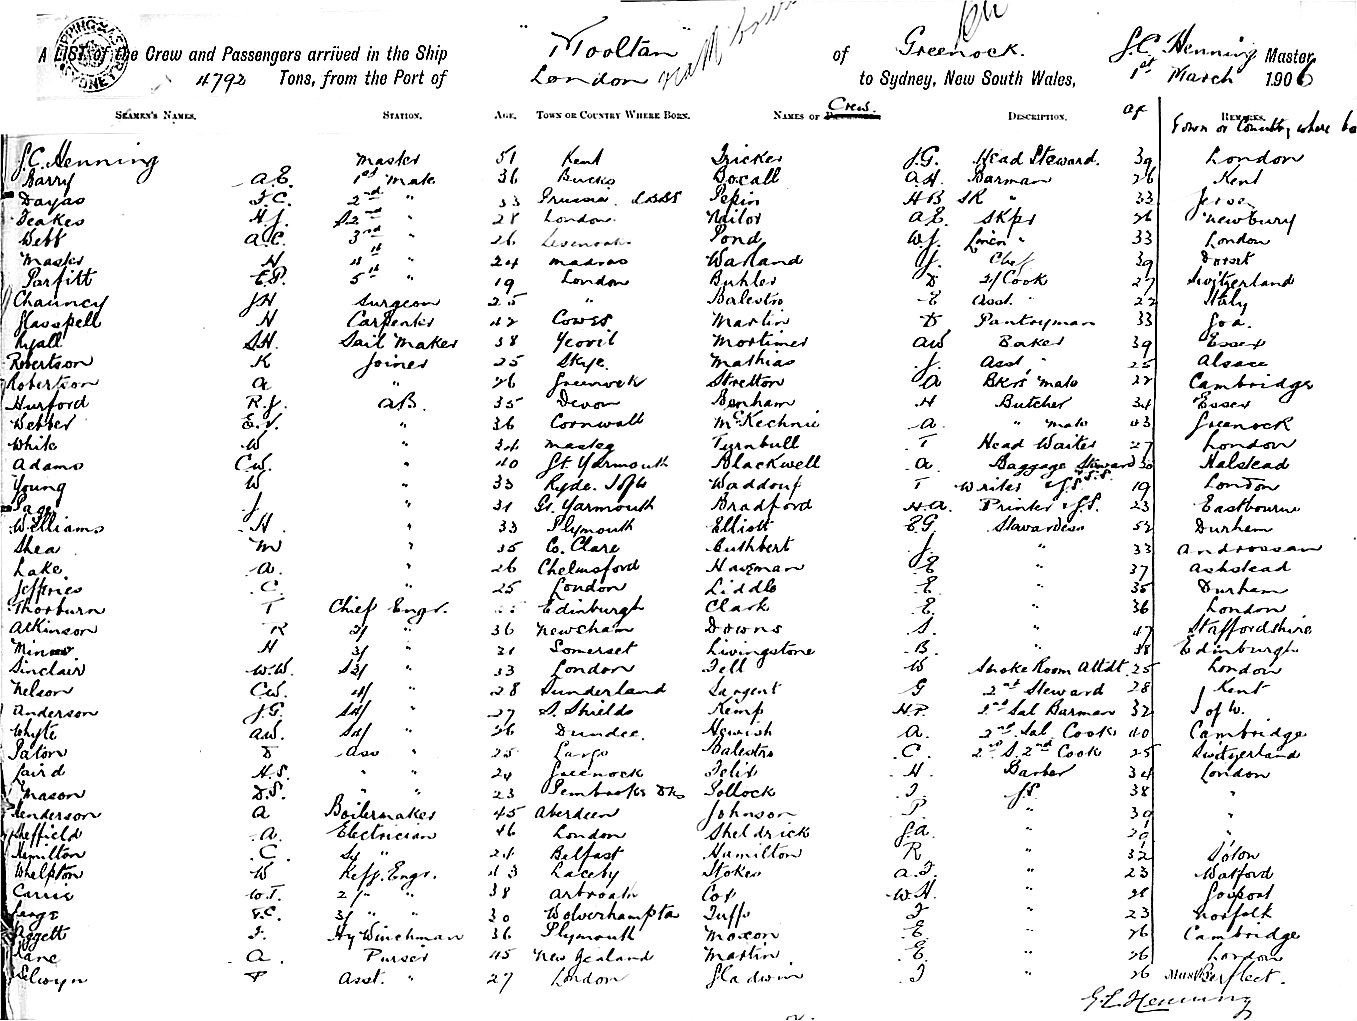 A LIST of the Crew and Passengers arrived in the Ship "Mooltan" of Greenock. S.C. Henning Master
4792 Tons, from the Port of London to Sydney, New South Wales, 1st March 1906
SEAMEN'S NAMES. STATION. AGE. TOWN OR COUNTRY WHERE BORN. NAMES OF Crew. DESCRIPTION. age REMARKS.
Town or Country where
S.C. Henning Master 51 Kent Tricker J.G. Head Steward. 39 London
Barry A.E. 1st Mate 36 Bucks Boxall A.H. Barman 26 Kent
Dayas 2nd " 33 Prussia Pepin H B SR " 33
Teakes H J. S2nd " 28 London Nilor A E. Skps 26 Newbury
Webb A C. 3rd " 26 Pond W J. Linen " 33 London
Master H 4th " 24 Madras Wakland J. Chef 39 Dorset
Parfitt E.P. 5th " 19 London Buhler D 2/ Cook 27 Switzerland
Chauncy J H Surgeon 25 " Balestro E Asst. " 22 Italy
Glasspell H Carpenter 42 Cowes Martin D Pantryman 33 Goa.
Ryall S.H. Sail Maker 38 Yeovil Mortimer AW Baker 39 Essex
Robertson K Joiner 25 Skye. Mathias J. Asst. " 25 Alsace
Robertson A " 26 Greenock Stretton A Bkrs Mate 22 Cambridge
Hurford R.J. A.B. 35 Devon Benham H Butcher 34 Essex
Webber E.V. " 36 Cornwall McKechnie A. " Mate 43 Greenock
White W " 34 Masteg Turnbull T Head Waiter 27 London
Adams C.W. " 40 Gt. Yarmouth Blackwell A. Baggage Steward 30 Halstead
Young W " 33 Ryde. I of W Waddouf T Writer & J.S.S.S. 19 London
Page J " 31 Gt. Yarmouth Bradford H.A. Printer & J.S. 23 Eastbourne
Williams H. " 33 Plymouth Elliott E G. Stewardess 52 Durham
Shea M " 35 Co. Clare Cuthbert J. " 33 Androssan
Lake. A. " 26 Chelmsford Hawzman E " 37 Ashstead
Jeffries C. " 25 London Liddle E. " 35 Durham
Thorburn T Chief Engr. Edinburgh Clark E. " 36 London
Atkinson R 2/ " 36 Newsham Downs S. " 47 Staffordshire
H 3/ " 21 Somerset Livingstone B. " 38 Edinburgh
Sinclair W.W. S3/ " 33 London Tell W Smoke Room Attdt. 25 London
Nelson C.W. 4/ " 28 Sunderland Sargent G 2nd Steward 28 Kent
Anderson J.G. S4/ " 27 S. Shields Kemp H.P. 2nd Sal Barman 32 I of W.
Whyte A.W. 5/ " 26 Dundee. Hewish A. 2nd Sal. Cook 40 Cambridge
Paton D Ass " 25 Largo Balestro C. 2nd S. 2nd Cook 25 Switzerland
Laird H.S. " " 24 Greenock Felix H. Barber 34 London
Mason D.S. " " 23 Pembroke Dks Pollock J. JS 38 "
Henderson A Boilermaker 45 Aberdeen Johnson P. " 39 "
Sheffield A. Electrician 46 London Sheldrick J.A. " 20 "
Hamilton C. S/ " 24 Belfast Hamilton R " 32
Whelpton W Reff. Engr. 43 Laceby Stokes A.J. " 23 Watford
Carrie W.T. 2/ " " 38 Arbroath Cox W.H. " 28 Gosport
Large F.C. 3/ " " 30 Wolverhampton Tuffs J " 23 Norfolk
Piggett J. Hy Winchman 36 Plymouth Moxon E " 26 Cambridge
Lane A. Purser 45 New Zealand Martin E. " 26 London
Selwyn P Asst. " 27 London Gladwin J " 26
S.C. Henning